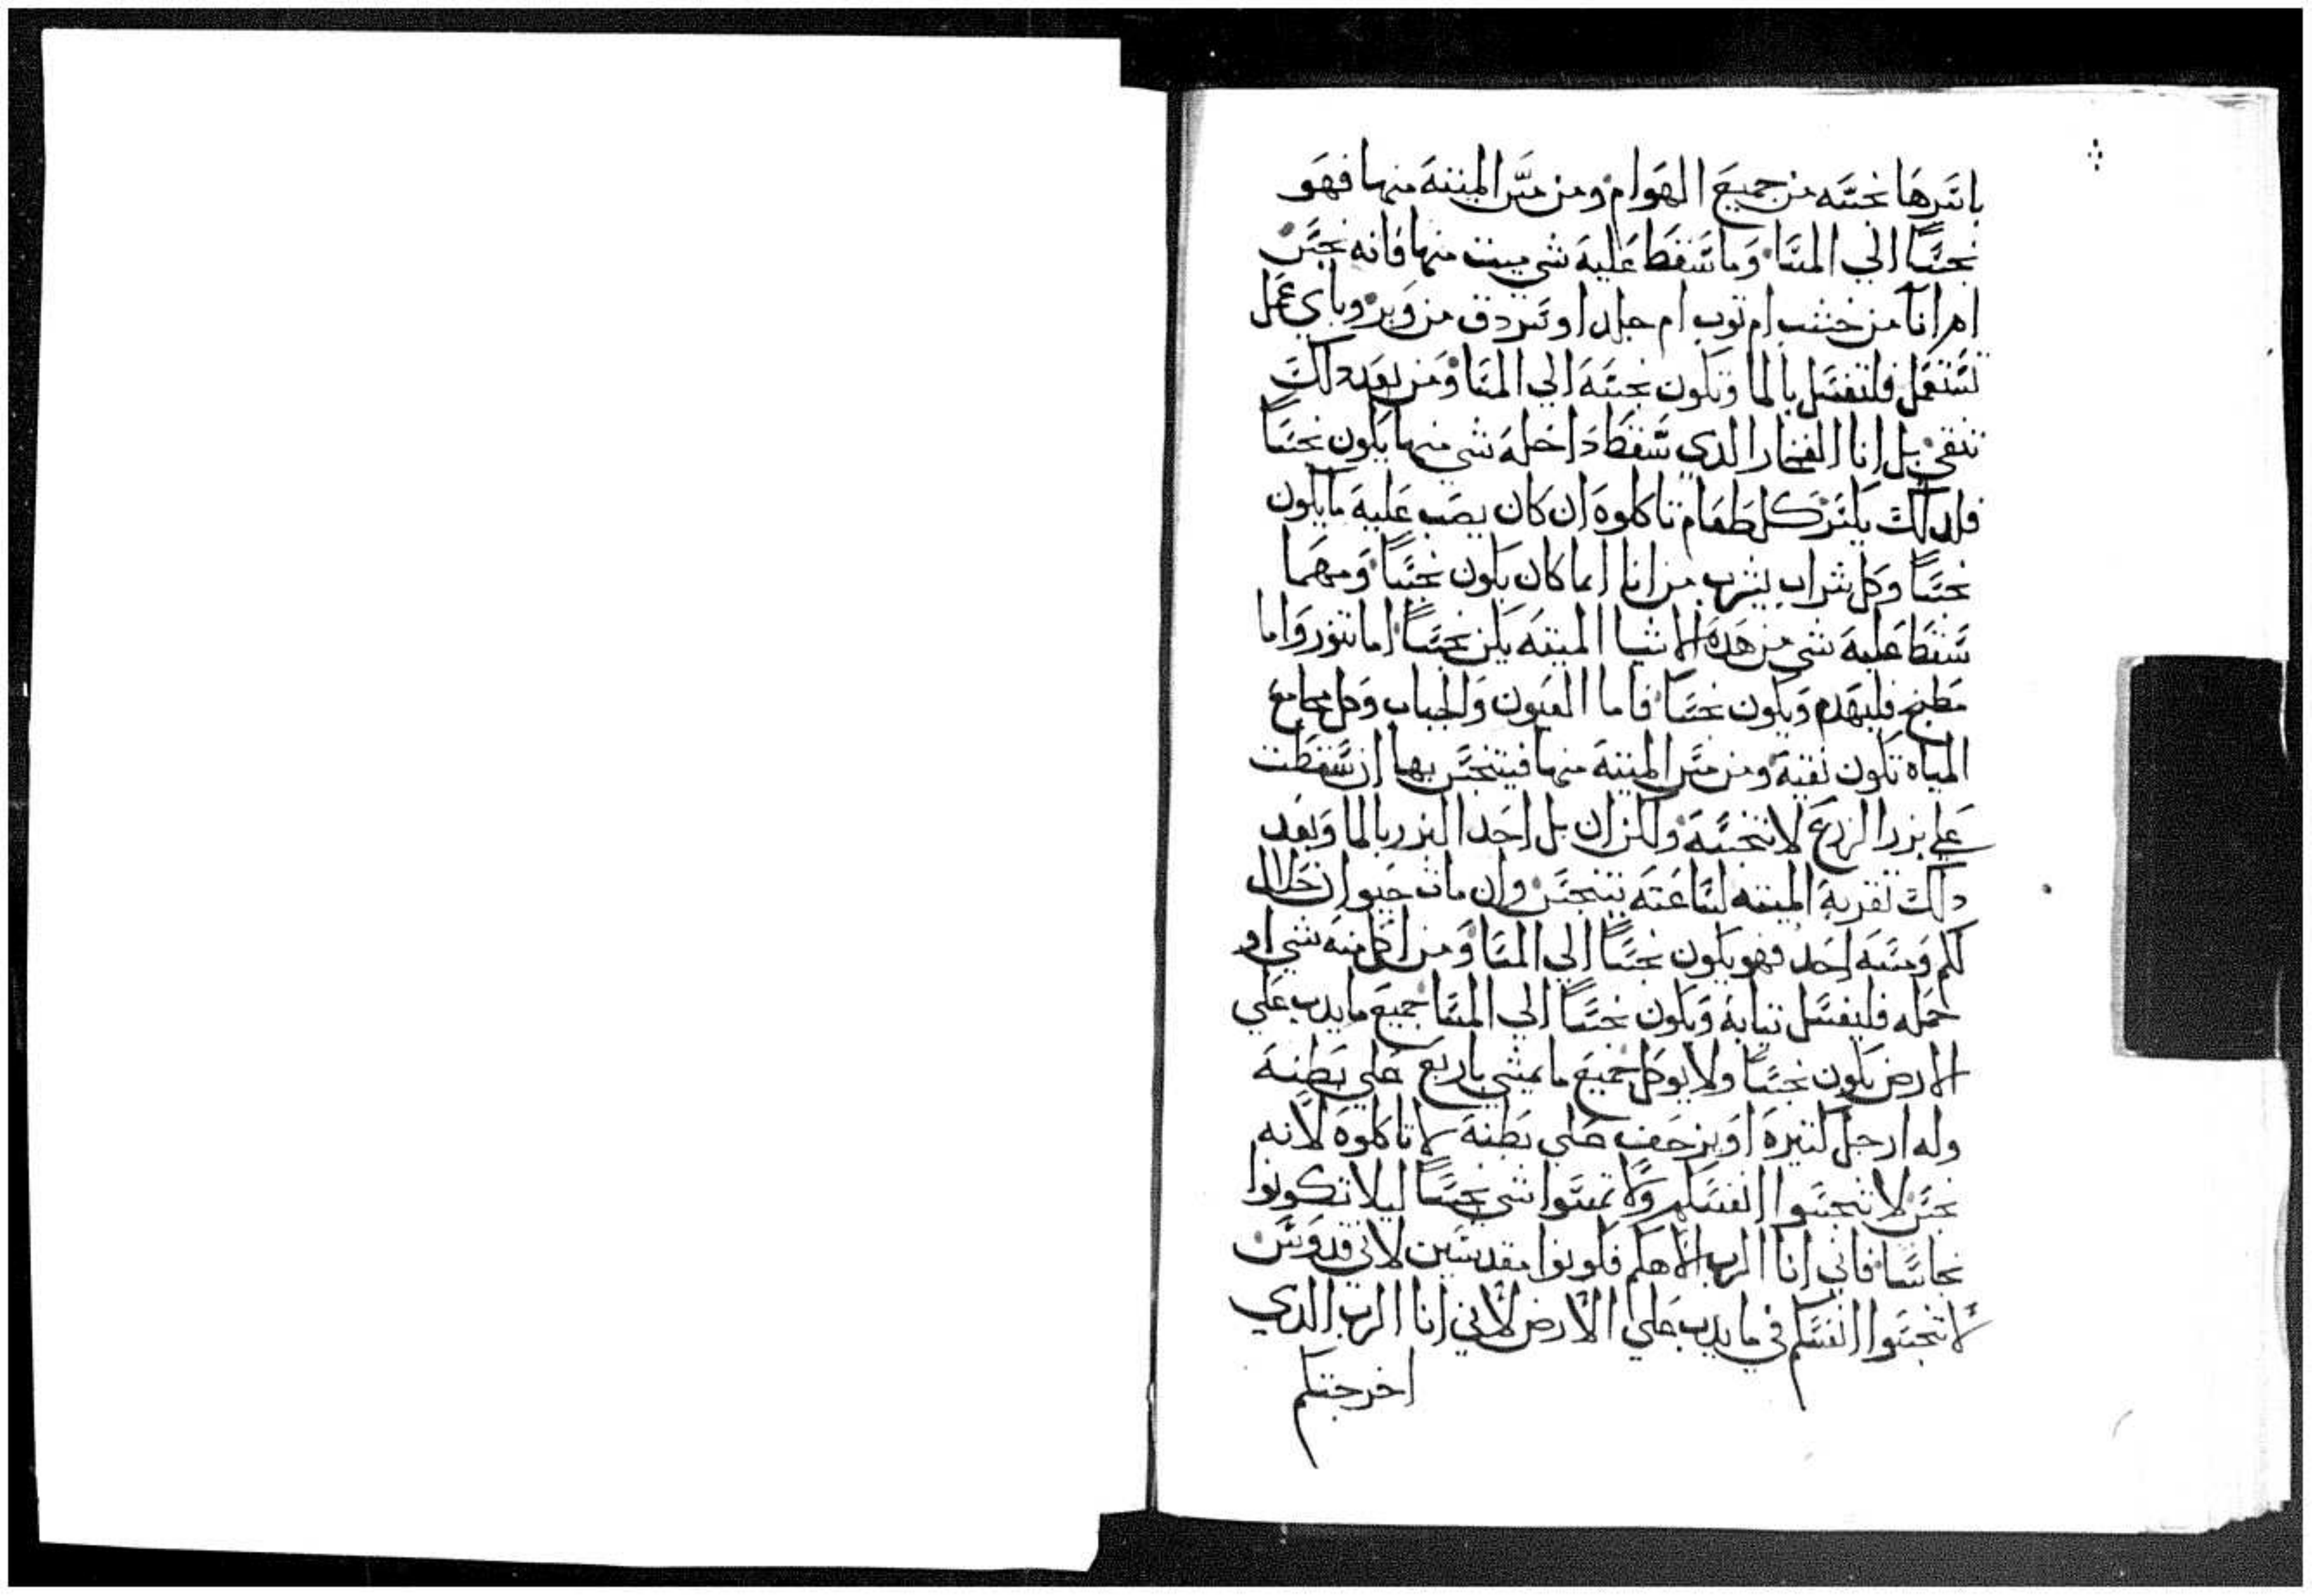 باسرها نجسه من جميع الهوام ومن مس الميته منها فهو
نجسًا الي المسا وما سقط عليه شي ميت منها فانه نجس
ام انا من خشب ام توب ام جلد او سردق من وبر وباي عمل
تستعمل فلتغسل بالما وتكون نجسه الي المسا ومن بعد دلك
تنقي بل انا الفخار الدي سقط داخله شي منها يكون نجسًا
فلدلك يكسر كل طعام تاكلوه ان كان يصب عليه ما يكون
نجسًا وكل شراب يشرب من انا ايما كان يكون نجسًا ومهما
سقط عليه شي من هده الاشيا الميته يكن نجسًا اما تنور واما
مطبخ فليهدم ويكون نجسًا فاما العيون والجباب وكل مجامع
المياه تكون نقيه ومن مس الميته منها فيتنجس بها ان سقطت
علي بزر الزرع لا تنجسه ولكن ان بل احد البزر بالما وبعد
دلك تقربه الميته لساعته يتنجس وان مات حيوان حلال
لكم ومسه احد فهو يكون نجسًا الي المسا ومن اكل منه شي او
حمله فليغسل تيابه ويكون نجسًا الي المسا جميع ما يدب علي
الارض يكون نجسًا ولا يوكل جميع ما يمشي باربع علي بطنه
وله ارجل كتيره او يزحف علي بطنه لا تاكلوه لانه
نجس لا تنجسوا انفسكم ولا تمسوا شي نجسًا ليلا تكونوا
نجاسًا فاني انا الرب الاهكم فكونوا مقدسين لاني قدوس
لا تنجسوا انفسكم في ما يدب علي الارض لاني انا الرب الدي
اخرجتكم